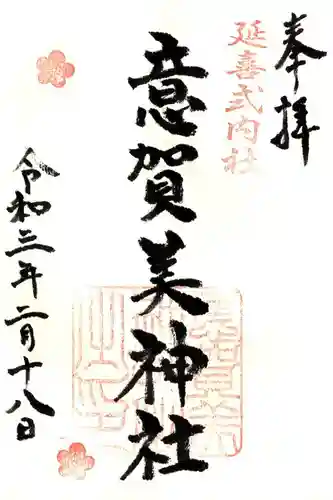 奉拝
延喜式内社
意賀美神社
令和三年二月十八日